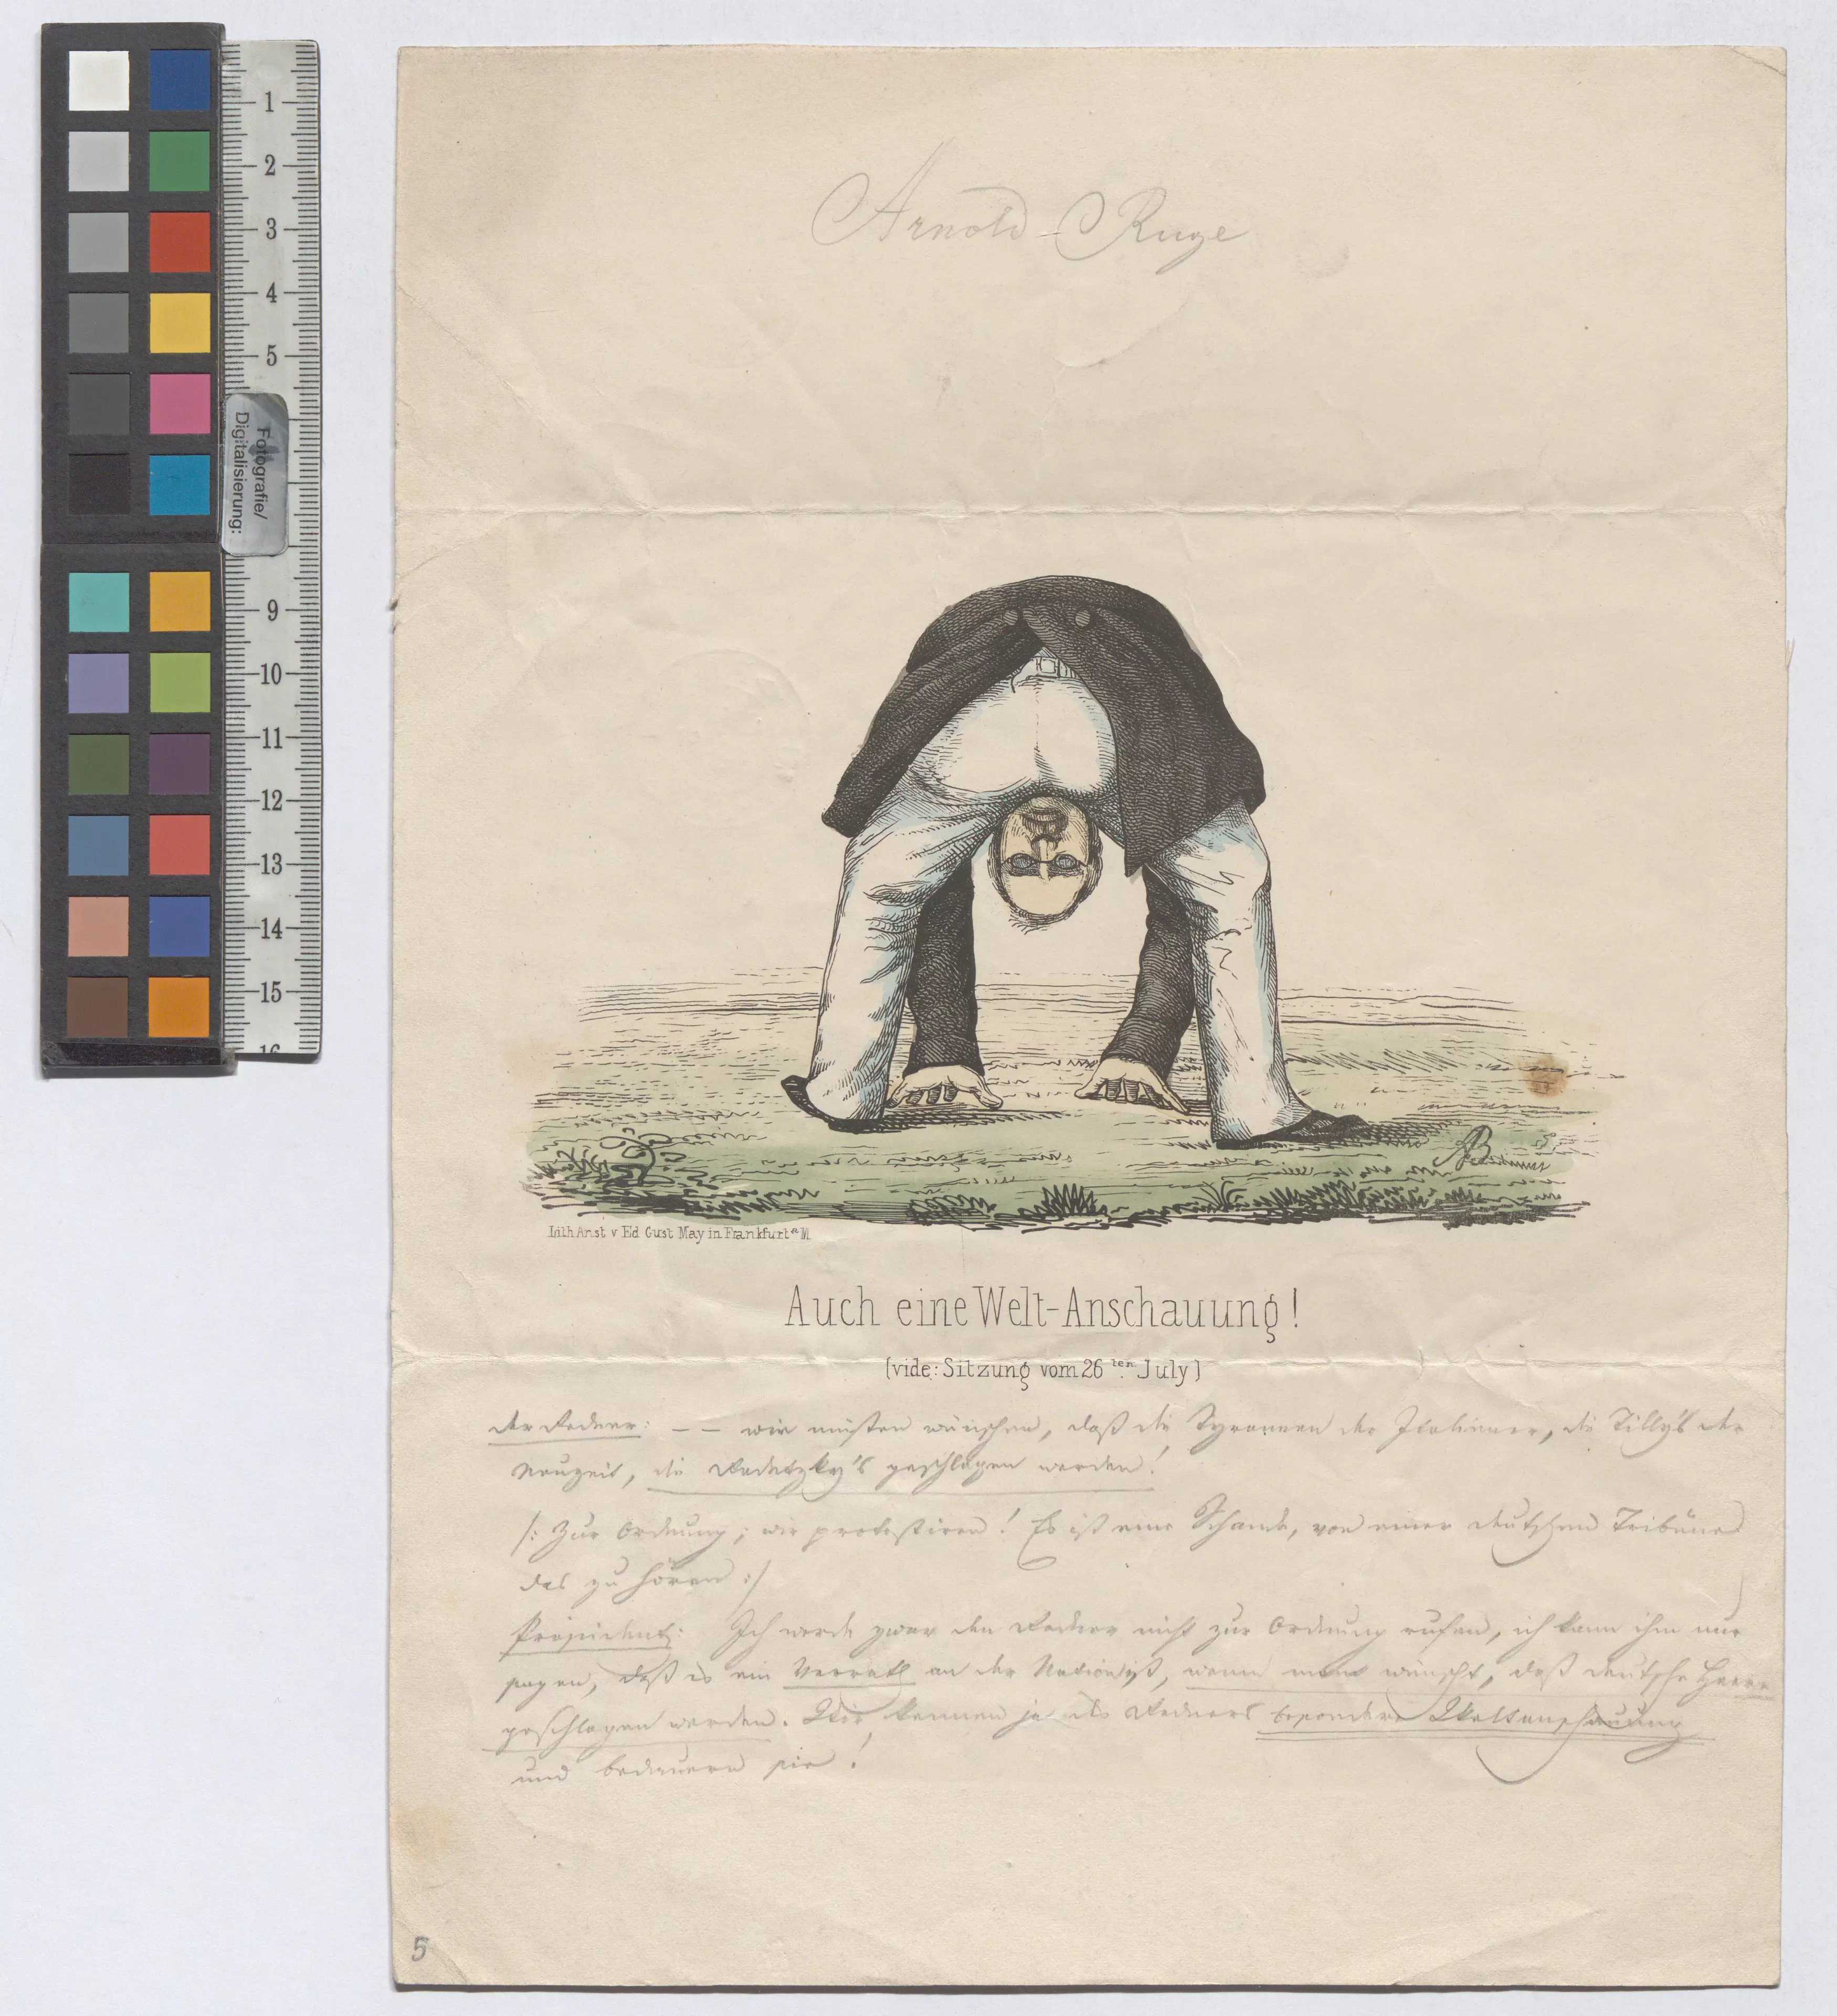 1
2
3
4
5
Fotografie/
Digitalisierung:
9
10
11
12
13
14
15
16
Arnold Ruge
Lith Anst v Ed Gust May in Frankfurt a M
Auch eine Welt-Anschauung!
(vide: Sitzung vom 26ten July)
der Redner: — — wir müsten wünschen, daß die Tyrannen der Italiener, die Tilly's der
Neuzeit, die Radetzky's geschlagen werden!
/: Zur Ordnung; wir protestiren! Es ist eine Schande, von einer deutschen Tribüne
das zu hören :/
Präsident: Ich werde zwar den Redner nicht zur Ordnung rufen, ich kann ihm nur
sagen, daß es ein Verrath an der Nation ist, wenn man wünscht, daß deutsche Heere
geschlagen werden. Wir kennen ja des Redners besondere Weltanschauung
und bedauern sie!
5